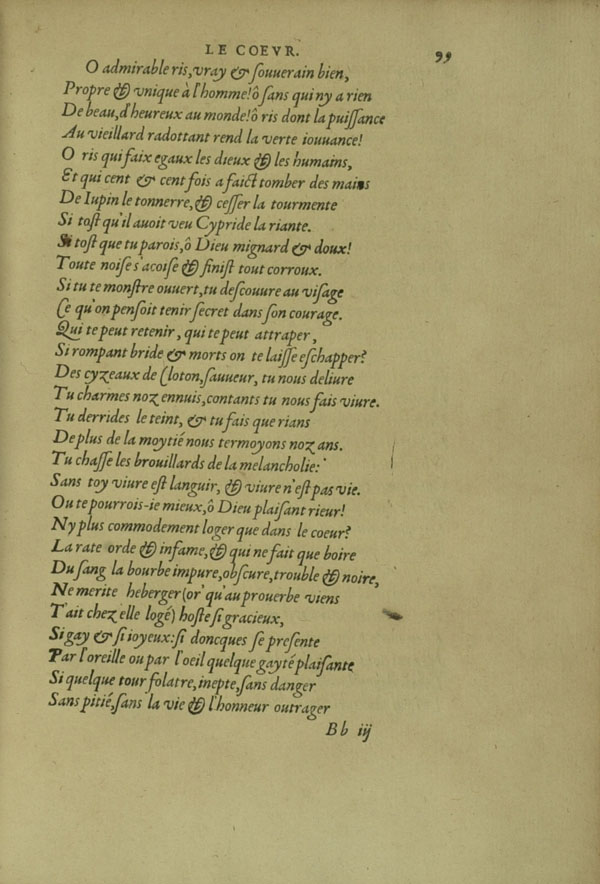 LE COEVR. 99
O admirable ris, vray & souuerain bien,
Propre & vnique à l'homme! ô sans qui ny a rien
De beau, d'heureux au monde! ô ris dont la puissance
Au vieillard radottant rend la verte iouuance!
O ris qui faix egaux les dieux & les humains,
Et qui cent & cent fois a faict tomber des mains
De Iupin le tonnerre, & cesser la tourmente
Si tost qu'il auoit veu Cypride la riante.
Si tost que tu parois, ô Dieu mignard & doux!
Toute noise s'acoise & finist tout corroux.
Si tu te monstre ouuert, tu descouure au visage
Ce qu'on pensoit tenir secret dans son courage.
Qui te peut retenir, qui te peut attraper,
Si rompant bride & mors on te laisse eschapper?
Des cyzeaux de Cloton, sauueur, tu nous deliure
Tu charmes noz ennuis, contants tu nous fais viure.
Tu derrides le teint, & tu fais que rians
De plus de la moytié nous termoyons noz ans.
Tu chasse les brouillards de la melancholie:
Sans toy viure est languir, & viure n'est pas vie.
Ou te pourrois-ie mieux, ô Dieu plaisant rieur!
Ny plus commodement loger que dans le coeur?
La rate orde & infame, & qui ne fait que boire
Du sang la bourbe impure, obscure, trouble & noire,
Ne merite heberger (or' qu'au prouerbe viens
T'ait chez elle logé) hoste si gracieux,
Si gay & si ioyeux: si doncques se presente
Par l'oreille ou par l'oeil quelque gayté plaisante
Si quelque tour folatre, inepte, sans danger
Sans pitié, sans la vie & l'honneur outrager
Bb iij